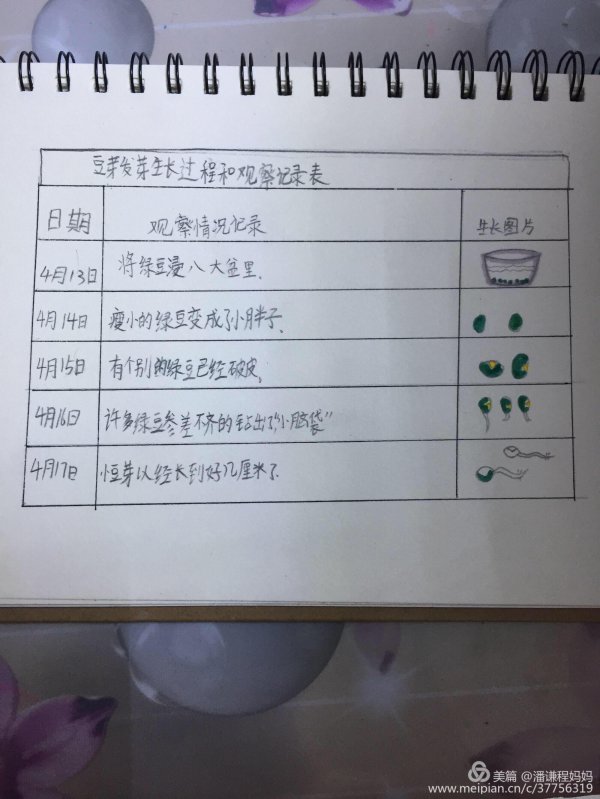 豆芽发芽生长过程和观察记录表
日期 观察情况记录 生长图片
4月13日 将绿豆漫八大盆里.
4月14日 瘦小的绿豆变成了小胖子.
4月15日 有个别的绿豆已经破皮.
4月16日 许多绿豆参差不齐的钻出了"小脑袋"
4月17日 小豆芽以经长到好几厘米了.
美篇 @潘谦程妈妈
www.meipian.cn/c/37756319